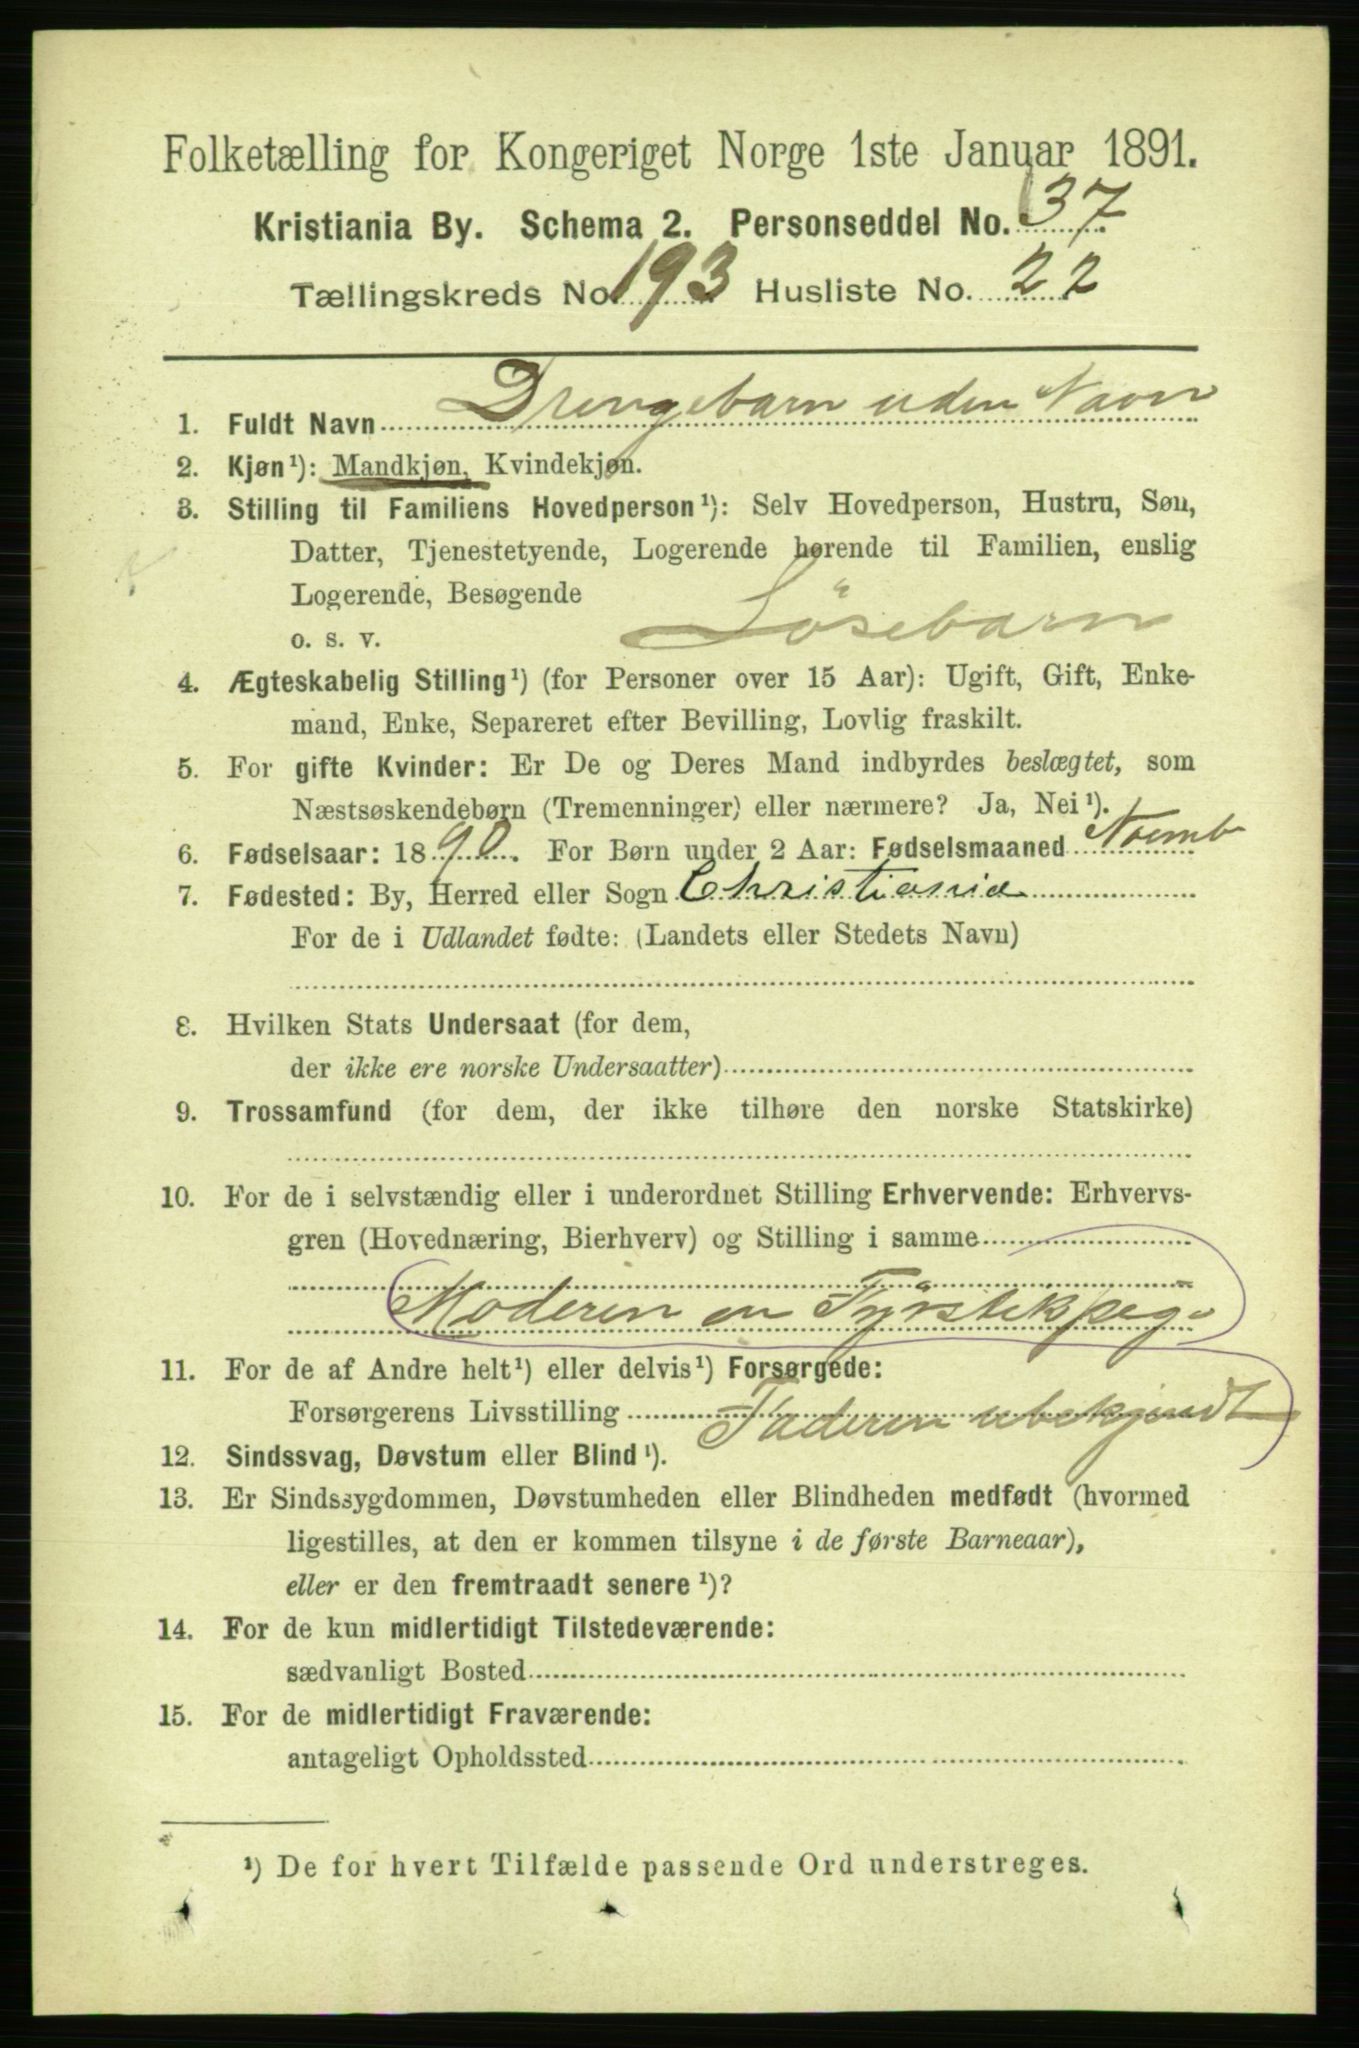 Folketælling for Kongeriget Norge 1ste Januar 1891.
Kristiania By. Schema 2. Personseddel No. 37
Tællingskreds No. 193 Husliste No. 22
1. Fuldt Navn Drengebarn uden Navn
2. Kjøn¹): Mandkjøn, Kvindekjøn.
3. Stilling til Familiens Hovedperson¹): Selv Hovedperson, Hustru, Søn,
Datter, Tjenestetyende, Logerende hørende til Familien, enslig
Logerende, Besøgende
o. s. v. Lösebarn
4. Ægteskabelig Stilling¹) (for Personer over 15 Aar): Ugift, Gift, Enke-
mand, Enke, Separeret efter Bevilling, Lovlig fraskilt.
5. For gifte Kvinder: Er De og Deres Mand indbyrdes beslægtet, som
Næstsøskendebørn (Tremenninger) eller nærmere? Ja, Nei¹).
6. Fødselsaar: 1890. For Børn under 2 Aar: Fødselsmaaned Novmb
7. Fødested: By, Herred eller Sogn Christiania
For de i Udlandet fødte: (Landets eller Stedets Navn)
8. Hvilken Stats Undersaat (for dem,
der ikke ere norske Undersaatter)
9. Trossamfund (for dem, der ikke tilhøre den norske Statskirke)
10. For de i selvstændig eller i underordnet Stilling Erhvervende: Erhvervs-
gren (Hovednæring, Bierhverv) og Stilling i samme
Moderen en Fyrstikpeg-
11. For de af Andre helt¹) eller delvis¹) Forsørgede:
Forsørgerens Livsstilling Faderen ubekjendt
12. Sindssvag, Døvstum eller Blind¹).
13. Er Sindssygdommen, Døvstumheden eller Blindheden medfødt (hvormed
ligestilles, at den er kommen tilsyne i de første Barneaar),
eller er den fremtraadt senere¹)?
14. For de kun midlertidigt Tilstedeværende:
sædvanligt Bosted
15. For de midlertidigt Fraværende:
antageligt Opholdssted
¹) De for hvert Tilfælde passende Ord understreges.